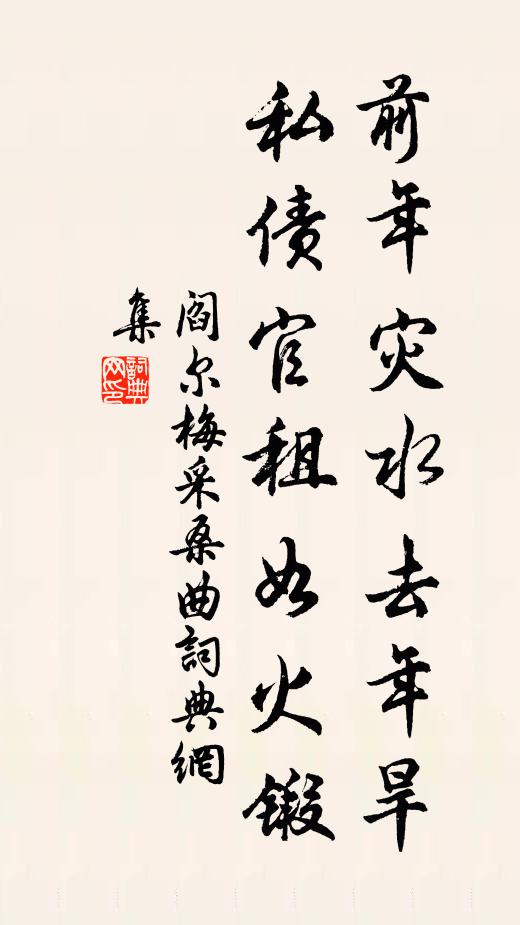 前年灾水去年旱
私债官租如火锻
阎尔梅采桑曲詞典網
集
詞典
网印